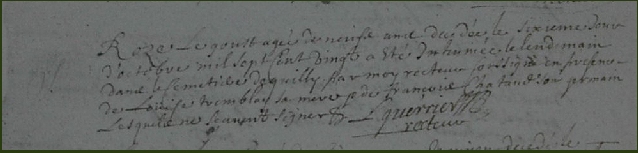 Roze Le goust agée de neuffe ans decedée le sixieme jour
d'octobre mil sept sent vingt a été Inhumée le lend main
dans le semetiere de quilly par moy recteur soussigné en presence
de Louise tremblay sa mere & de françoise Chatand son germain
Lesquels ne scavent signer &
L guerrier
recteur